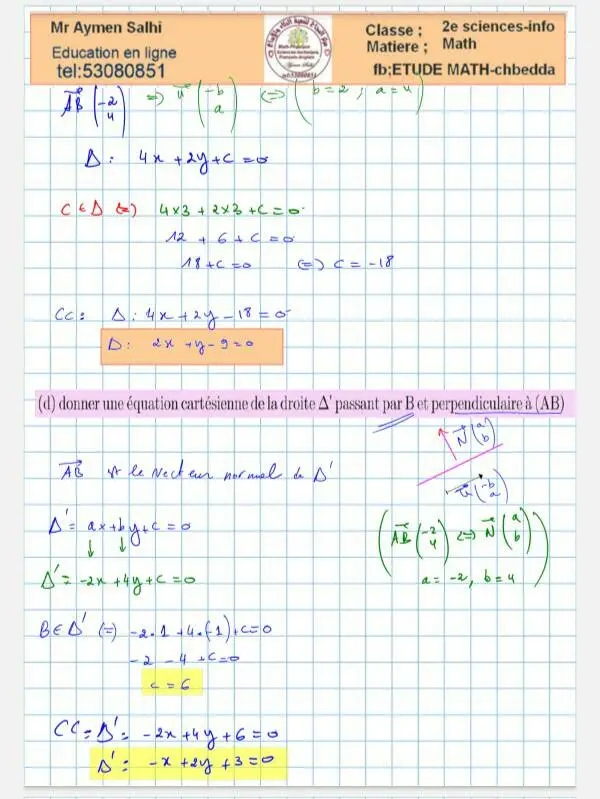 Mr Aymen Salhi
Education en ligne
tel:53080851
Classe ; 2e sciences-info
Matiere ; Math
fb;ETUDE MATH-chbedda
AB (-2 4) => u (-b a) <=> (b = 2 ; a = 4)
Δ : 4x + 2y + c = 0
C ∈ Δ (=) 4×3 + 2×3 + c = 0
12 + 6 + c = 0
18 + c = 0 (=) c = -18
CC : Δ : 4x + 2y - 18 = 0
Δ : 2x + y - 9 = 0
(d) donner une équation cartésienne de la droite Δ' passant par B et perpendiculaire à (AB)
N (a b)
u (-b a)
AB le vecteur normal de Δ'
Δ' = ax + by + c = 0
(AB (-2 4) <=> N (a b)
a = -2, b = 4)
Δ' = -2x + 4y + c = 0
B ∈ Δ' (=) -2·1 + 4·(-1) + c = 0
-2 - 4 + c = 0
c = 6
CC = Δ' = -2x + 4y + 6 = 0
Δ' = -x + 2y + 3 = 0